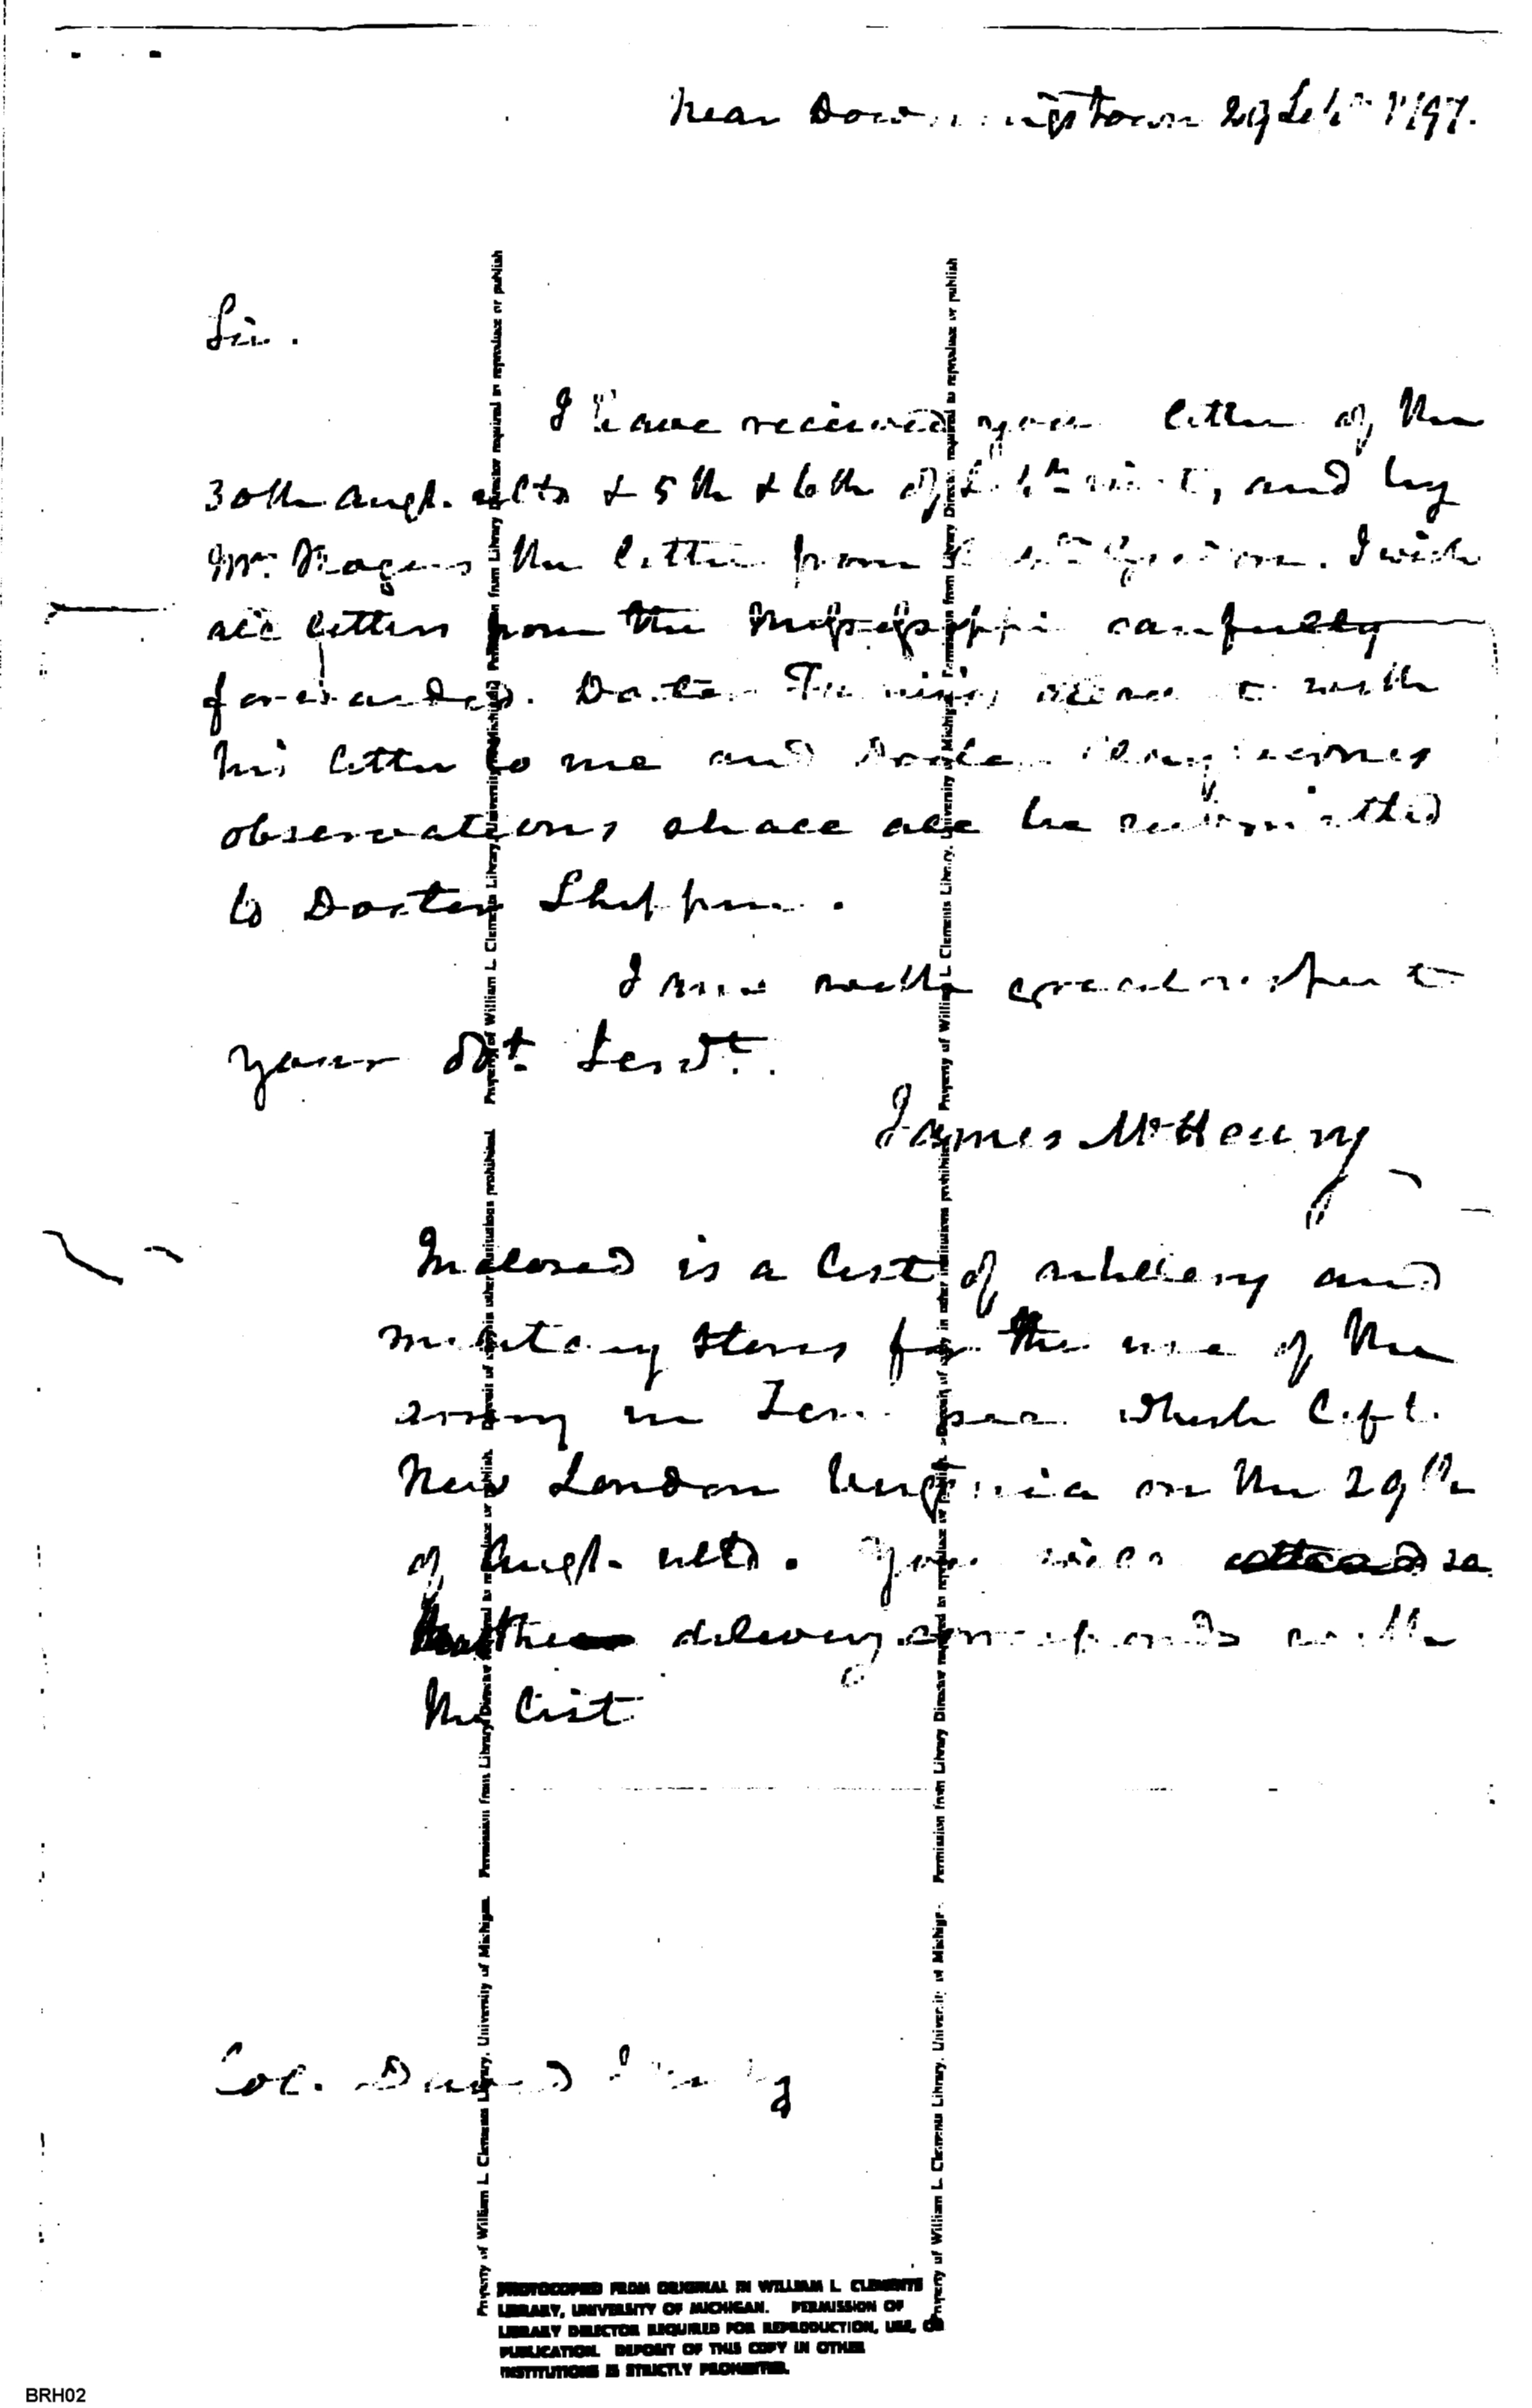 Near Downingstown 29 Sepr 1797.
Sir.
I have received your letter of the
30th Augt. ulto & 5th & 6th of and by
Mr. Rogers the letter from I wish
all letters from the Mississippi carefully
forwarded. Doctor with
his letter to me and Doctor
observations shall all be submitted
to Doctor Shippen.
I am with great respect
your Obt. Servt.
James McHenry
Inclosed is a list of artillery and
military stores for the use of the
army in Tennessee which left
New London Virginia on the 29th
of Augt. ulto. You will
the delivery corresponds with
the list
Col. David Henley
Property of William L. Clements Library, University of Michigan. Permission from Library Director required to reproduce or publish. Deposit of copy in other institutions prohibited.
Property of William L. Clements Library, University of Michigan. Permission from Library Director required to reproduce or publish. Deposit of copy in other institutions prohibited.
PHOTOCOPIED FROM ORIGINAL IN WILLIAM L. CLEMENTS
LIBRARY, UNIVERSITY OF MICHIGAN. PERMISSION OF
LIBRARY DIRECTOR REQUIRED FOR REPRODUCTION, USE, OR
PUBLICATION. DEPOSIT OF THIS COPY IN OTHER
INSTITUTIONS IS STRICTLY PROHIBITED.
BRH02